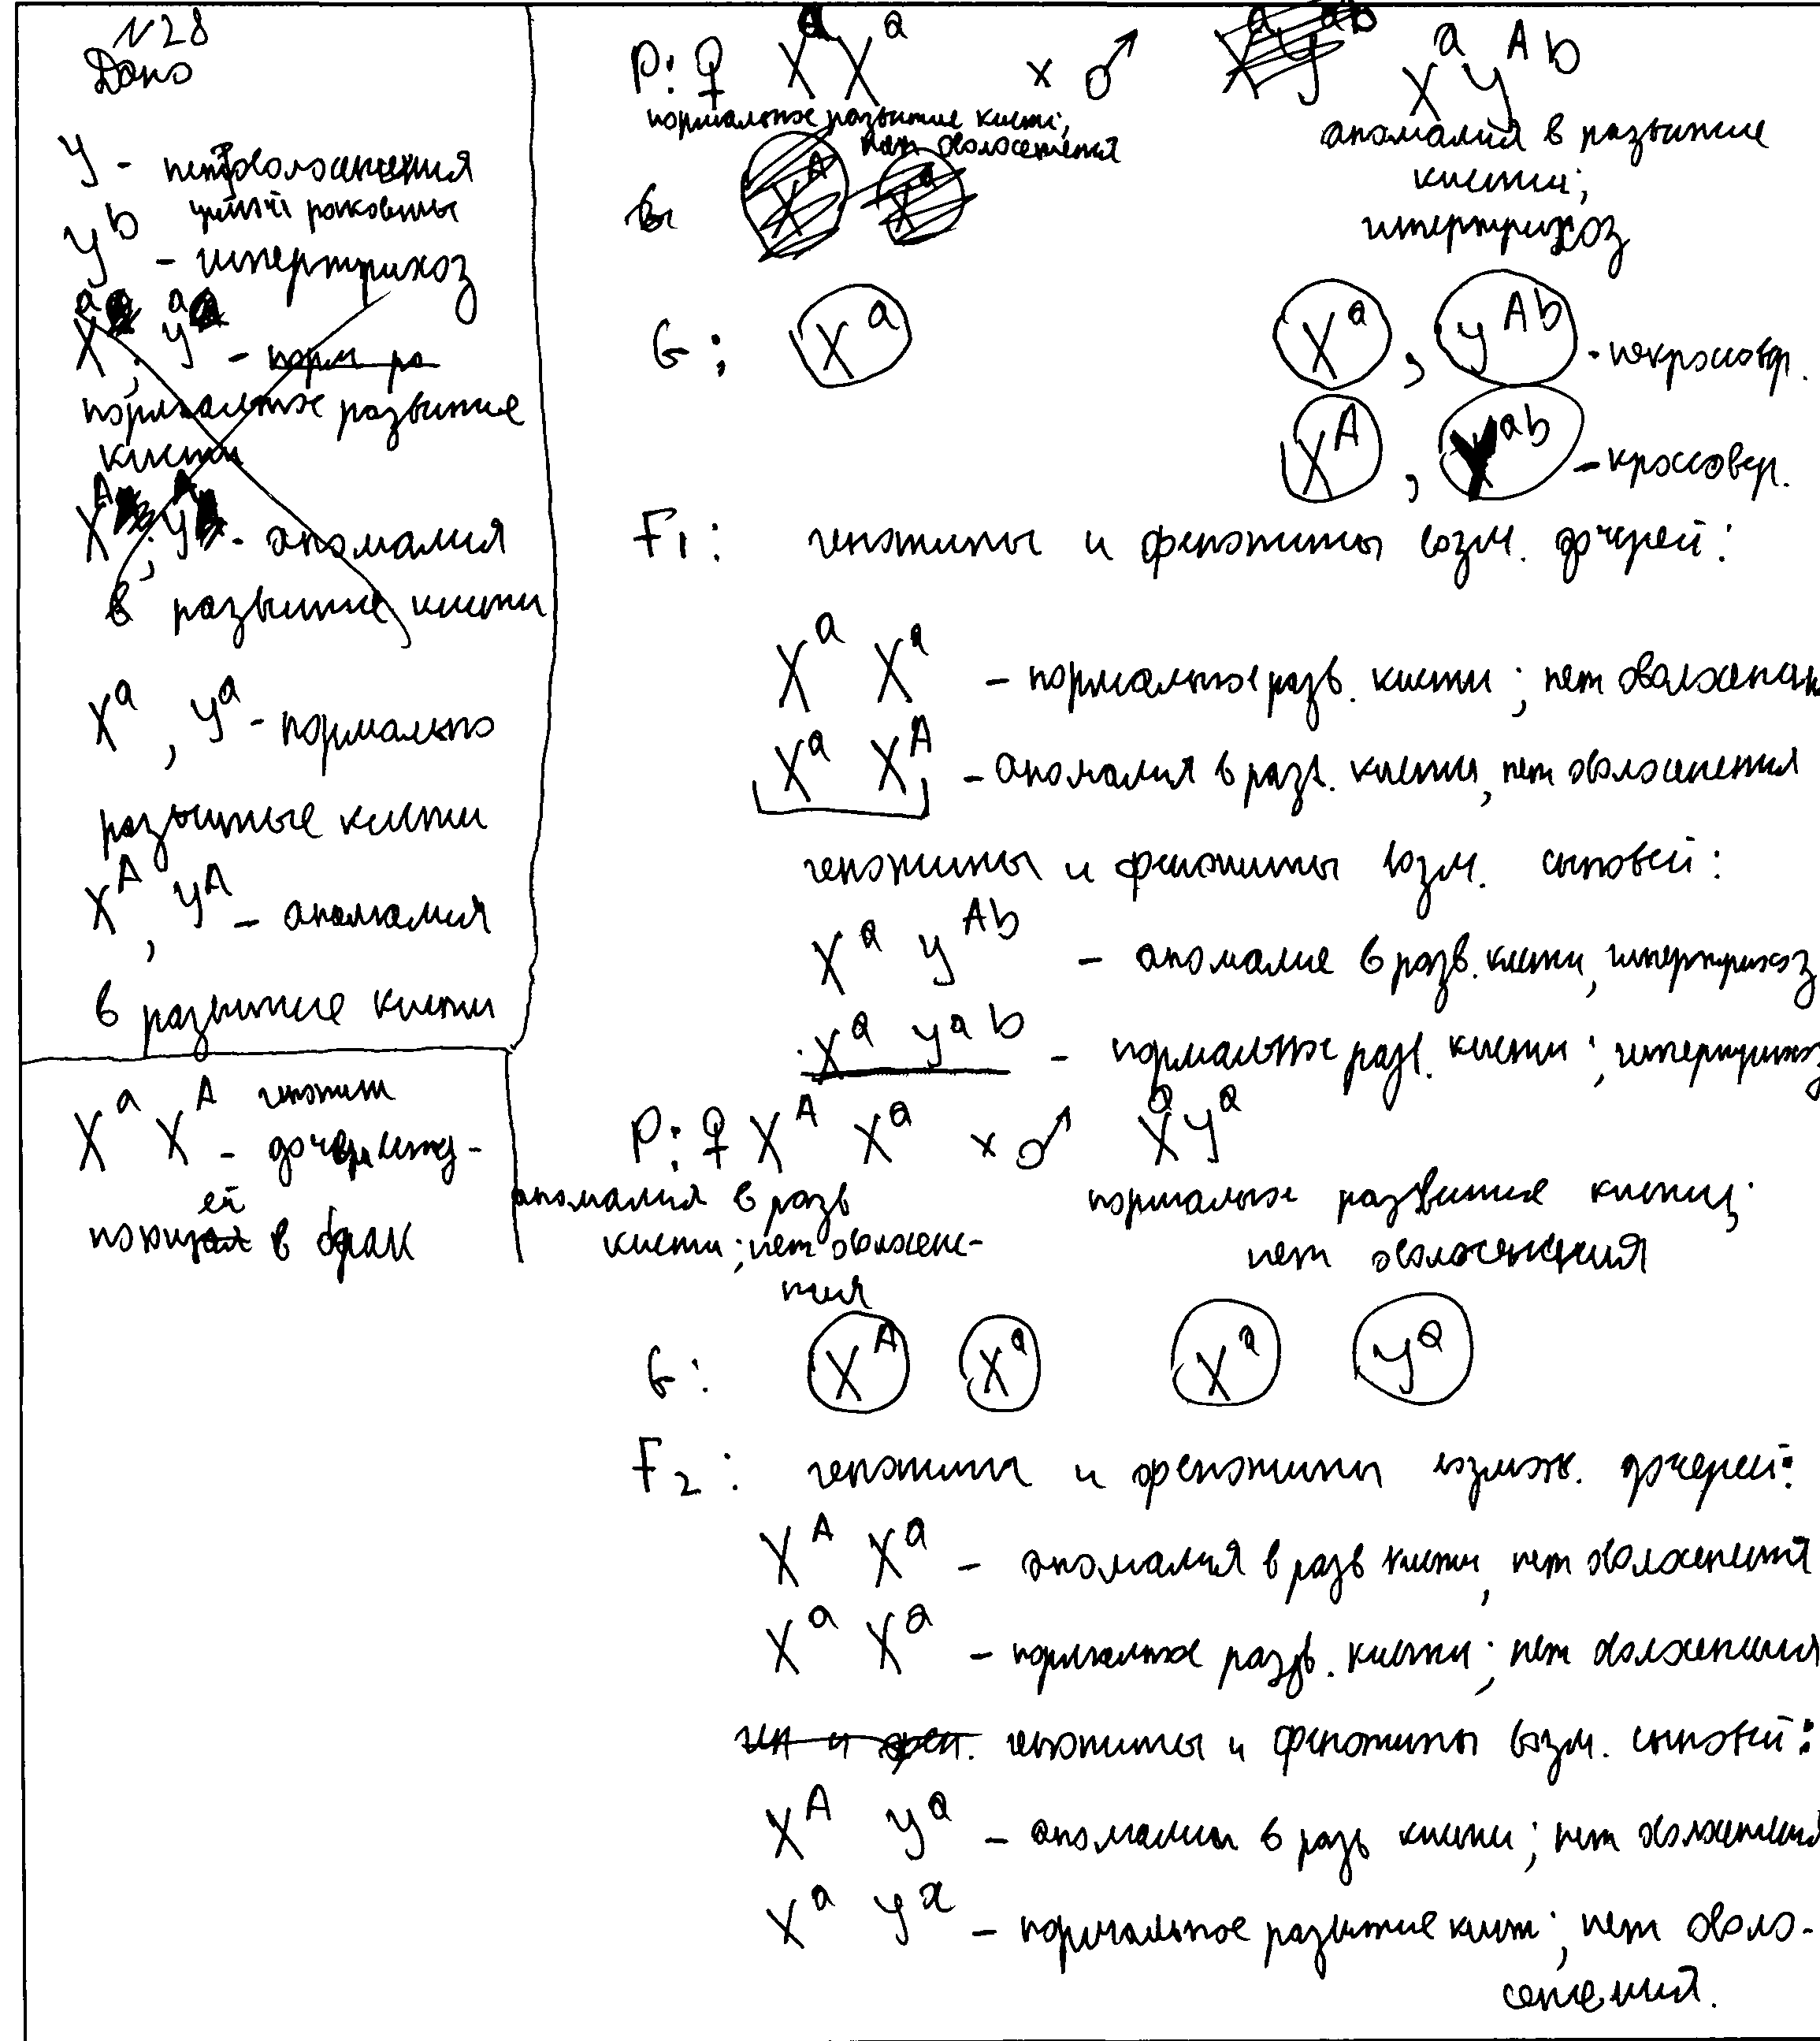 N28
Дано
У - нет оволосенения
ушной раковины
У^b - гипертрихоз
X^a, У^a - норм ра
нормальное развитие
кисти
X^A, У^A - аномалия
в развитие кисти
X^a, У^a - нормально
развитые кисти
X^A, У^A - аномалия
в развитие кисти
X^a X^A генотип
- дочери,
ей
в брак
P: ♀ X^a X^a × ♂ X^a У^Ab
нормальное развитие кисти;
нет оволосенения
аномалия в развитие
кисти;
гипертрихоз
G: X^a X^a, У^Ab - некроссовер.
X^A, У^ab - кроссовер.
F1: генотипы и фенотипы возм. дочерей:
X^a X^a - нормальное разв. кисти; нет
X^a X^A - аномалия в разв. кисти, нет оволосенения
генотипы и фенотипы возм. сыновей:
X^a У^Ab - аномалие в разв. кисти, гипертрихоз
X^a У^ab - нормальное разв. кисти; гипертрихоз
P: ♀ X^A X^a × ♂ X^a У^a
аномалия в разв
кисти; нет оволосене-
ния
нормальное развитие кисти;
нет оволосенения
G: X^A X^a X^a У^a
F2: генотипы и фенотипы возмож. дочерей:
X^A X^a - аномалия в разв кисти, нет оволосенения
X^a X^a - нормальное разв. кисти; нет оволосенения
ген и фен. генотипы и фенотипы возм. сыновей:
X^A У^a - аномалия в разв кисти; нет оволосенения
X^a У^a - нормальное развитие кисти; нет оволо-
сенения.